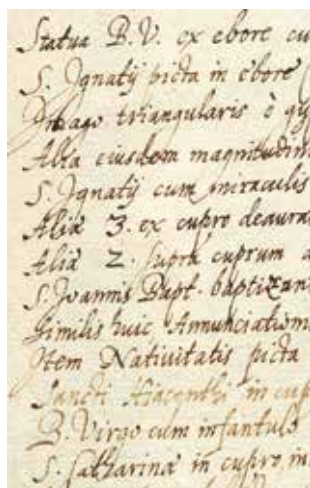 Statua B. V. ex ebore cu
S. Ignatij picta in ebore
Imago triangularis è gy
Alia eiusdem magnitudin
S. Ignatij cum miraculis
Aliæ 3. ex cupro deaura
Aliæ 2. supra cuprum a
S. Joannis Bapt. baptizan
Similis huic Annunciation
Item Nativitatis picta
Sancti Hiacenthi in cup
B. Virgo cum infantulo
S. Catharinæ in cupro in